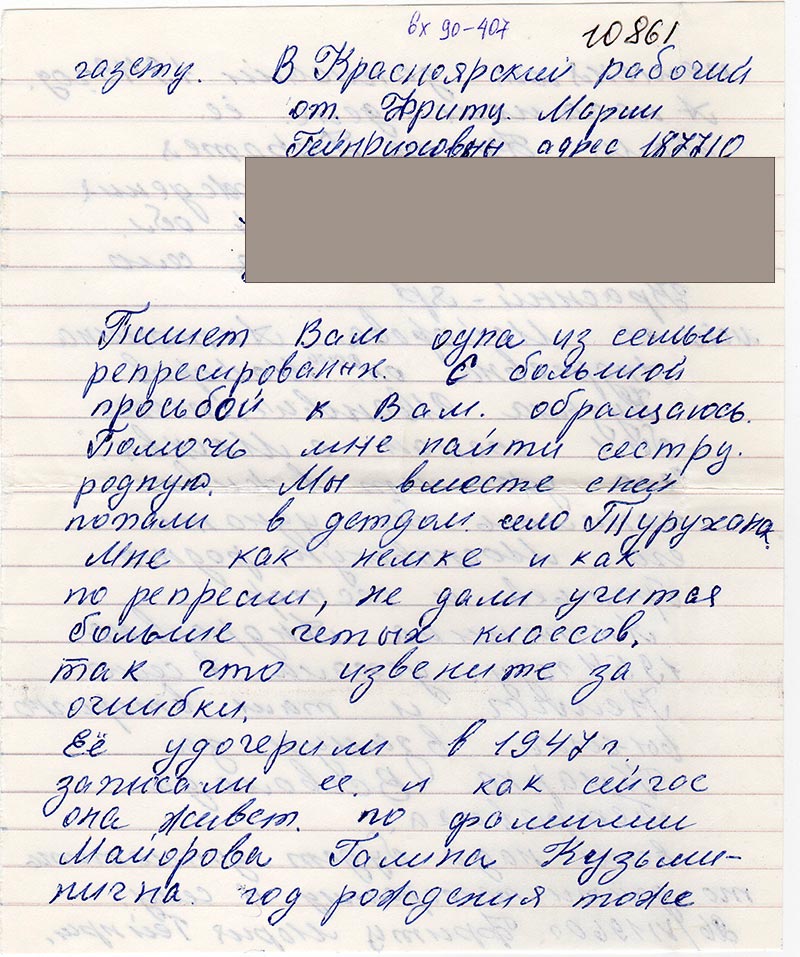 вх 90-407 10861
газету. В Красноярский рабочий
от. Фритц. Марии
Гейнриховны адрес 187710
Пишет Вам одна из семьи
репресированых. С большой
просьбой к Вам. обращаюсь.
Помочь мне найти сестру.
родную. Мы вместе с ней
попали в детдом. село Турухана.
Мне как немке и как
по репресии, не дали учится
больше четых классов,
так что извените за
ошибки.
Её удочерили в 1947 г.
записали ее. и как сейчас
она живет. по фамилии
Майорова Галина Кузьми-
нична. год рождения тоже